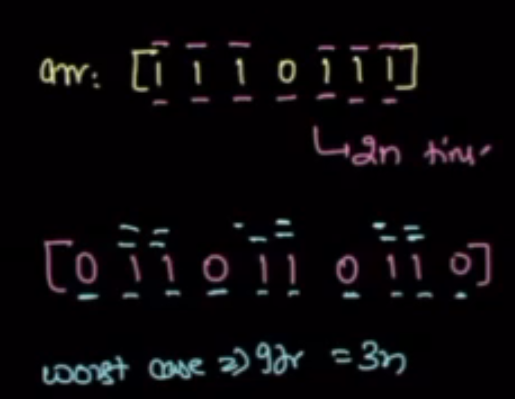 arr: [1 1 1 0 1 1 1]
↳ 2n
[0 1 1 0 1 1 0 1 1 0]
worst case ⇒ = 3n